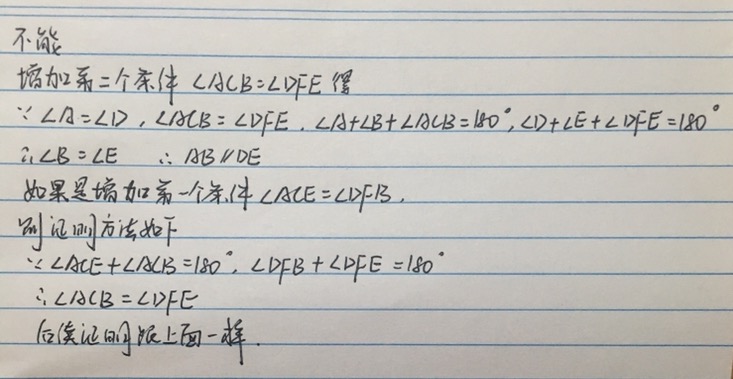 不能
增加第二个条件 ∠ACB=∠DFE 得
∵ ∠A=∠D，∠ACB=∠DFE．∠A+∠B+∠ACB=180°，∠D+∠E+∠DFE=180°
∴∠B=∠E ∴AB∥DE
如果是增加第一个条件∠ACE=∠DFB．
则证明方法如下
∵∠ACE+∠ACB=180°，∠DFB+∠DFE=180°
∴∠ACB=∠DFE
后续证明跟上面一样．